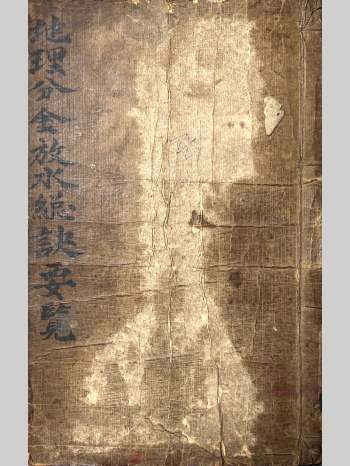 地理分金放水總訣要覽